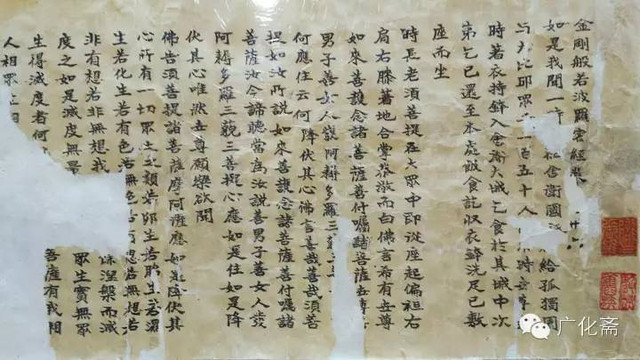 金剛般若波羅蜜經
如是我聞一時 舍衛國 給孤獨園
大比丘眾 百五十人 時世尊
時若衣持鉢入舍衛大城乞食於其城中次
第乞已還至本處飯食訖収衣鉢洗足已敷
座而坐
時長老須菩提在大眾中即從座起偏袒右
肩右膝著地合掌恭敬而白佛言希有世尊
如來善護念諸菩薩善付囑諸菩薩世尊
男子善女人發阿耨多羅三
何應住云何降伏其心佛言善哉善哉須菩
提如汝所說如來善護念諸菩薩善付囑諸
菩薩汝今諦聽當為汝說善男子善女人發
阿耨多羅三藐三菩提心應如是住如是降
伏其心唯然世尊願樂欲聞
佛告須菩提諸菩薩摩訶薩應如是降伏其
心所有一切眾生之類若卵生若胎生若濕
生若化生若有色若無色若有想若無想若
非有想若非無想我 餘涅槃而滅
度之如是滅度無量 眾生實無眾
生得滅度者何 菩薩有我相
人相眾生相
广化斋